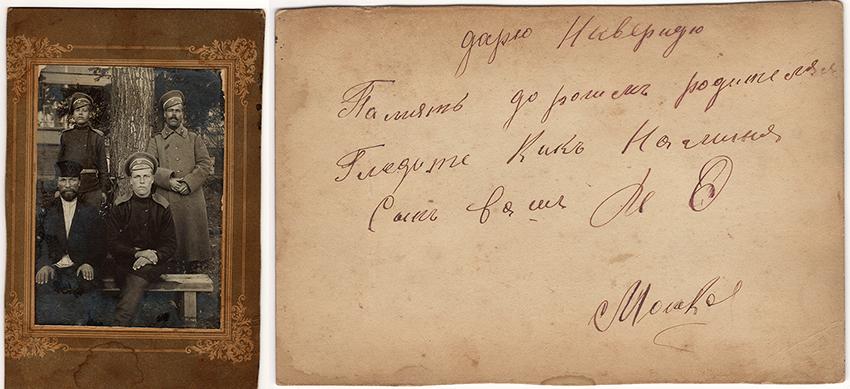 дарю Наверидю
Память дорогимъ родителямъ
Гледите Какъ На миня
Сынъ вашъ М О
Москва